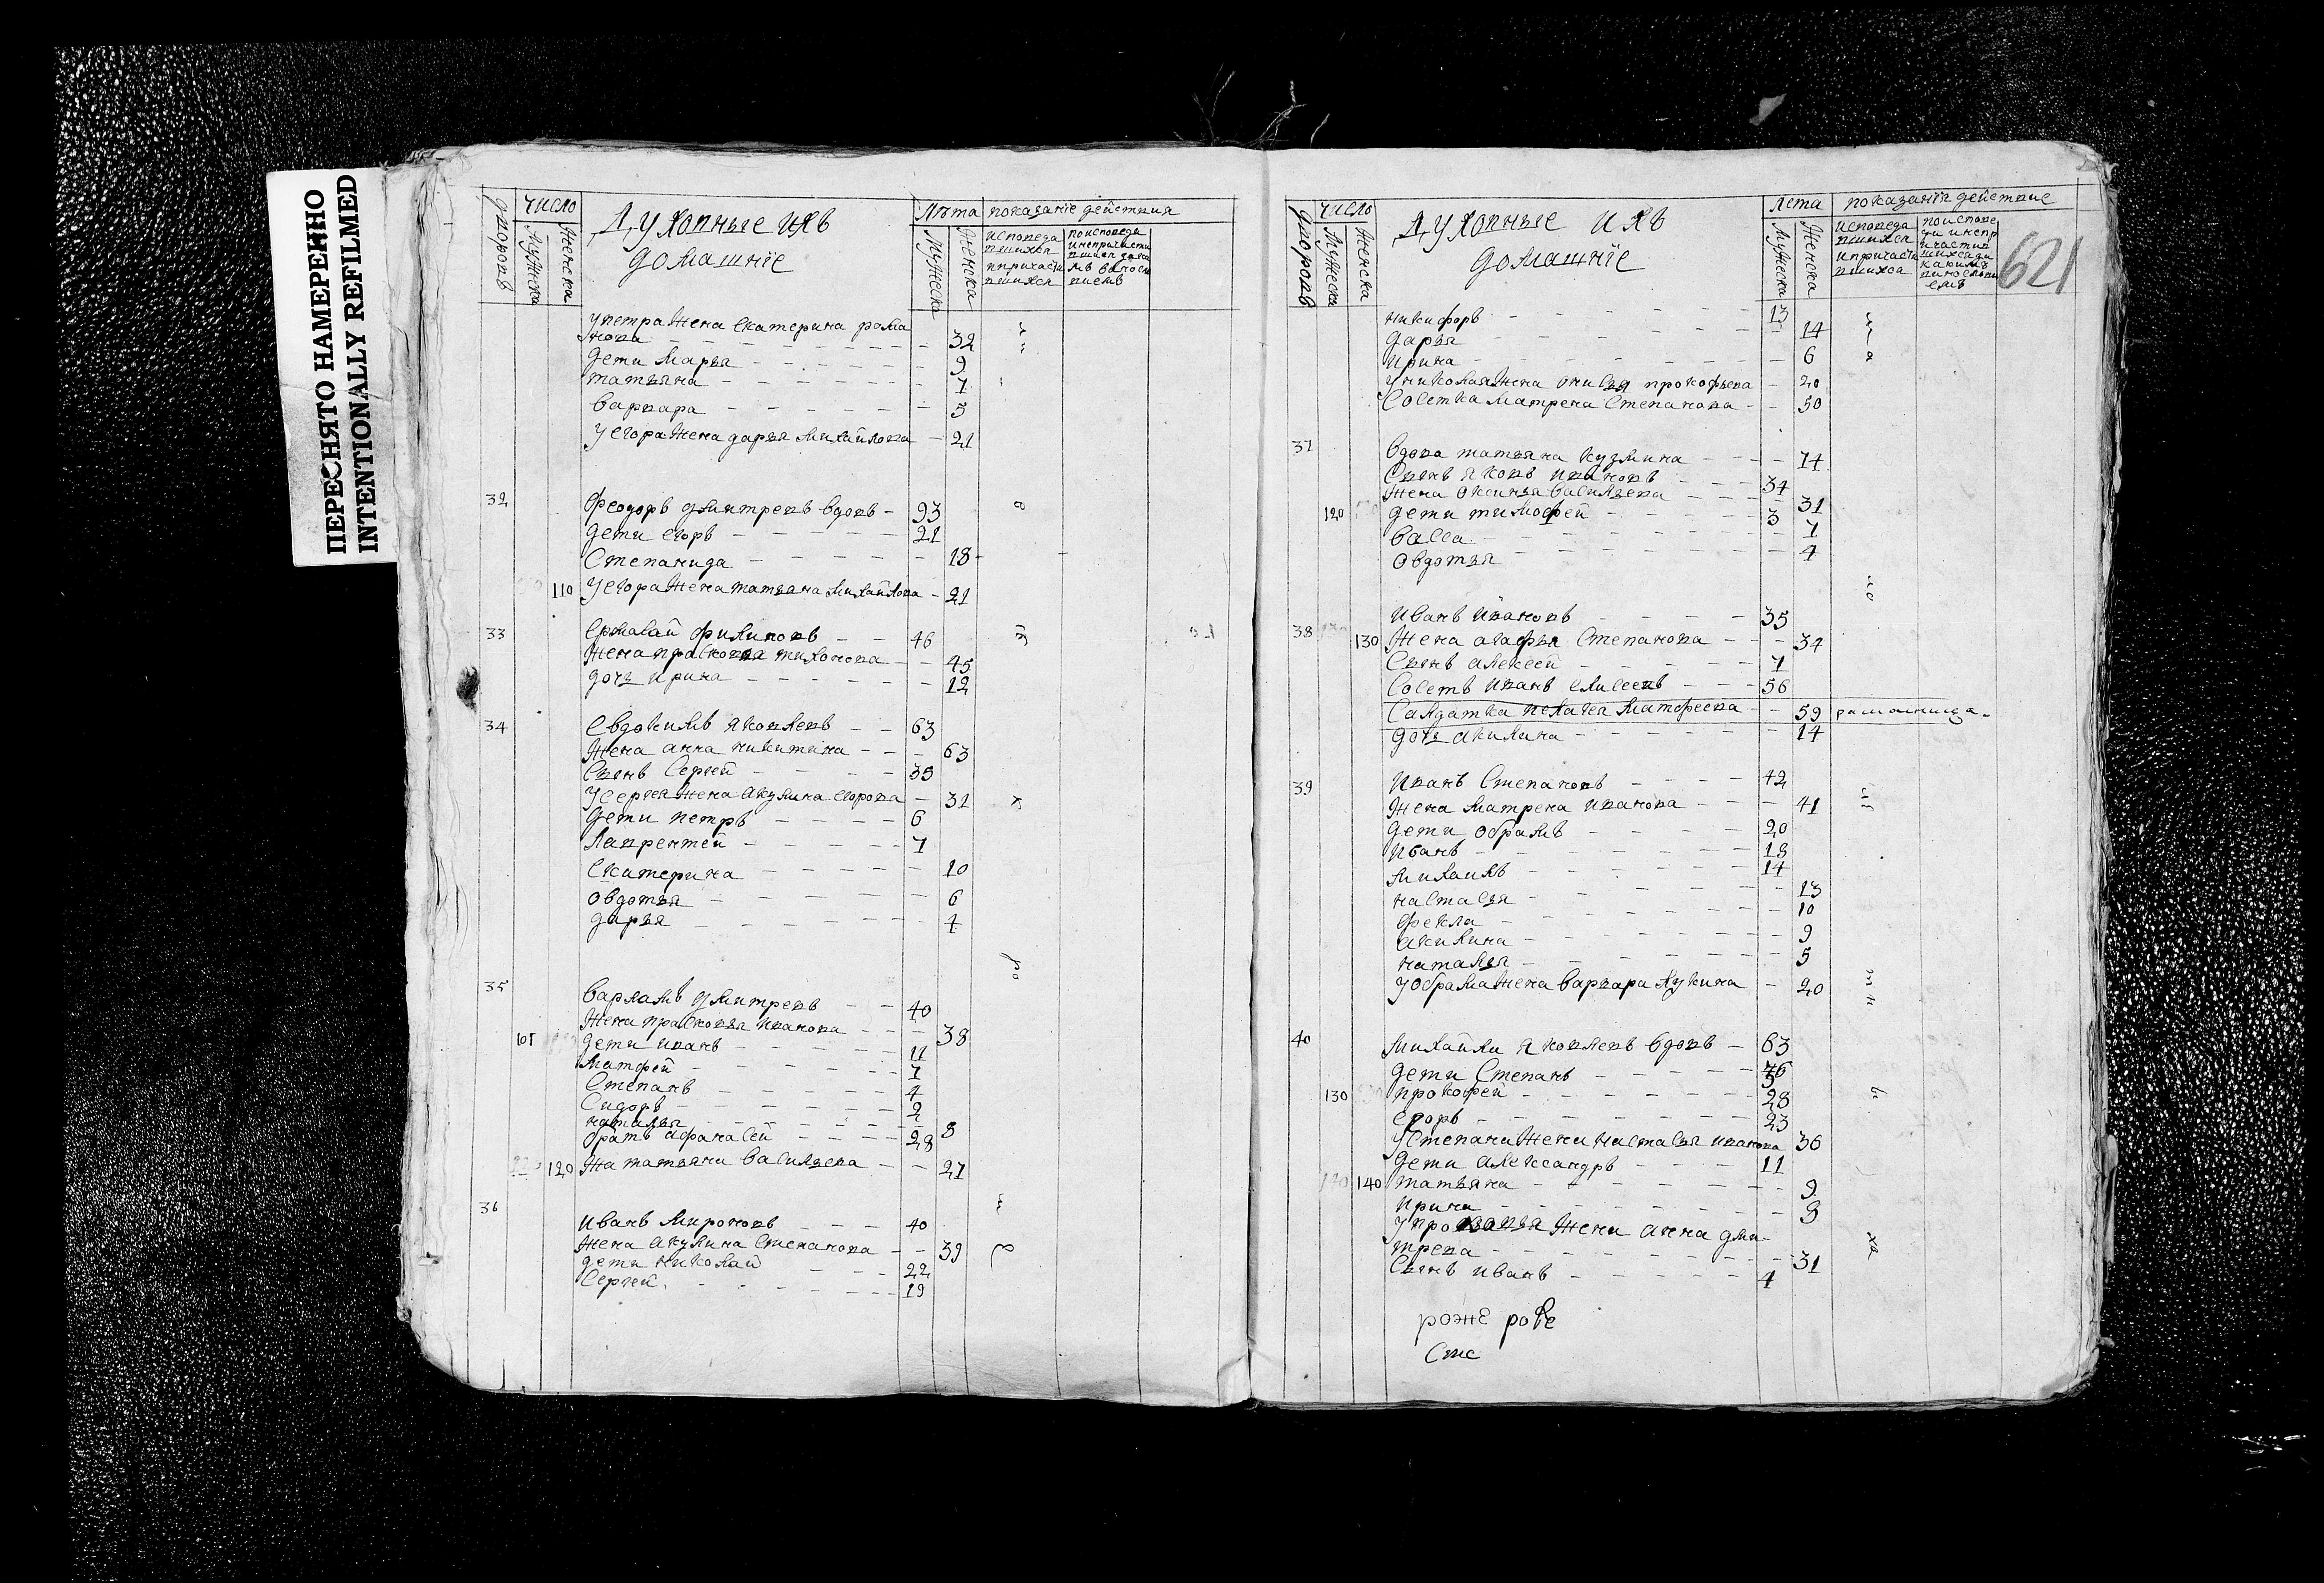 ПЕРЕСНЯТО НАМЕРЕННО
INTENTIONALLY REFILMED
дворовъ
число
мужеска
женска
Духовные ихъ
домашніе
лѣта
мужеска
женска
показаніе действия
исповеда
вшихся
и причасти
вшихся
по исповеди
и неприсасти
вшихся
у петра жена екатерина рома
нова 32
дети марья 9
татьяна 7
варвара 5
у егора жена дарья михайлова 21
32 феодоръ дмитревъ вдовъ 93
дети егоръ 21
степанида 18
110 у егора жена татьяна михайлова 21
33 ермалай филиповъ 46
жена прасковья тихонова 45
дочь ирина 12
34 евдокимъ яковлевъ 63
жена анна никитина 63
сынъ сергей 35
у сергея жена акулина егорова 31
дети петръ 6
лаврентей 1
екатерина 10
овдотья 6
дарья 4
35 варламъ дмитревъ 40
жена прасковья иванова 38
101 дети иванъ 11
матфей 7
степанъ 4
сидоръ 2
наталья 8
братъ афанасей 28
120 жена татьяна васильева 27
36 иванъ мироновъ 40
жена акулина степанова 39
дети николай 22
сергей 19
дворовъ
число
мужеска
женска
Духовные ихъ
домашніе
лета
мужеска
женска
показанія действие
исповеда
вшихся
и причасти
вшихся
по испове
ди и непр
ичастив
шихся
621
никифоръ 13
дарья 14
ирина 6
у николая жена онисья прокофьева 20
советка матрена степанова 50
37 вдова татьяна кузмина 74
сынъ яковъ ивановъ 34
жена оксинья васильева 31
120 дети тимофей 3
васса 7
овдотья 4
иванъ ивановъ 35
38 130 жена агафья степанова 34
сынъ алексей 7
советъ иванъ елисеевъ 56
салдатка пелагея матфеева 59
дочь акилина 14
39 иванъ степановъ 42
жена матрена иванова 41
дети обрамъ 20
иванъ 18
михаилъ 14
настасья 13
фекла 10
акилина 9
наталья 5
у обрама жена варвара лукина 20
40 михайла яковлевъ вдовъ 63
дети степанъ
130 прокофей 28
егоръ 23
у степана жена настасья иванова 36
дети александръ 11
140 татьяна 9
ирина 3
жена анна дми
трева 31
сынъ иванъ 4